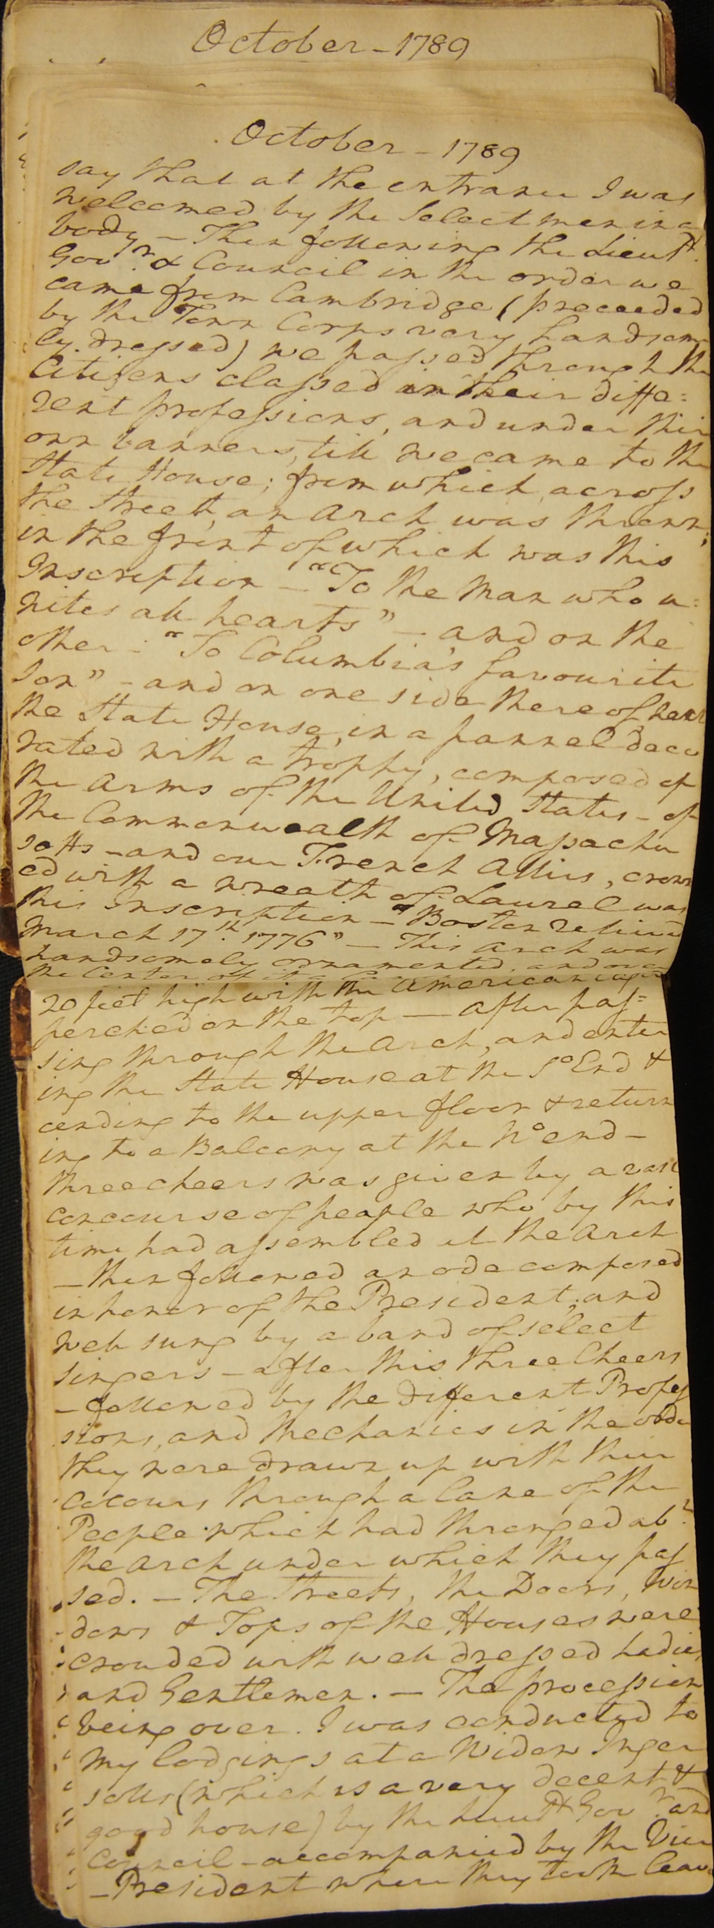 October - 1789
October - 1789
say that at the entrance I was
welcomed by the Select men in a
body. - Then following the Lieut.t
Gov.r & Council in the order we
came from Cambridge (preceeded
by the Town Corps very handsome
ly dressed) we passed through the
Citizens classed in their diffe=
rent professions, and under their
own banners, till we came to the
State House; from which, across
the Street, an Arch was thrown;
in the front of which was this
Inscription - "To the Man who u=
nites all hearts" - and on the
other - "To Columbia's favourite
Son" - and on one side thereof next
the State House, in a pannel deco
rated with a trophy, composed of
the Arms of the United States - of
the Commonwealth of Massachu
setts - and our French Allies, crown
ed with a wreath of Laurel was
this Inscription - "Boston relieved
March 17th. 1776" - This Arch was
handsomely ornamented, and over
the Center of it a
20 feet high with the American
perched on the top - After pas=
sing through the Arch, and enter
ing the State House at the So End &
cending to the upper floor & return
ing to a Balcony at the No end -
three cheers was given by a vast
concourse of people who by this
time had assembled at the Arch
- then followed an ode composed
in honor of the President; and
well sung by a band of select
Singers - after this three Cheers
- followed by the different Profes
sions, and Mechanics in the order
they were drawn up with their
colours through a lane of the
People which had thronged abt.
the Arch under which they pas
sed. - The Streets, the Doors, Win
dows & Tops of the Houses were
crouded with well dressed Ladies
and Gentlemen. - The procession
being over. I was conducted to
my lodgings at a Widow Inger
solls (which is a very decent &
good house) by the Lieut Gov.r and
Council - accompanied by the Vice
- President where they took leave